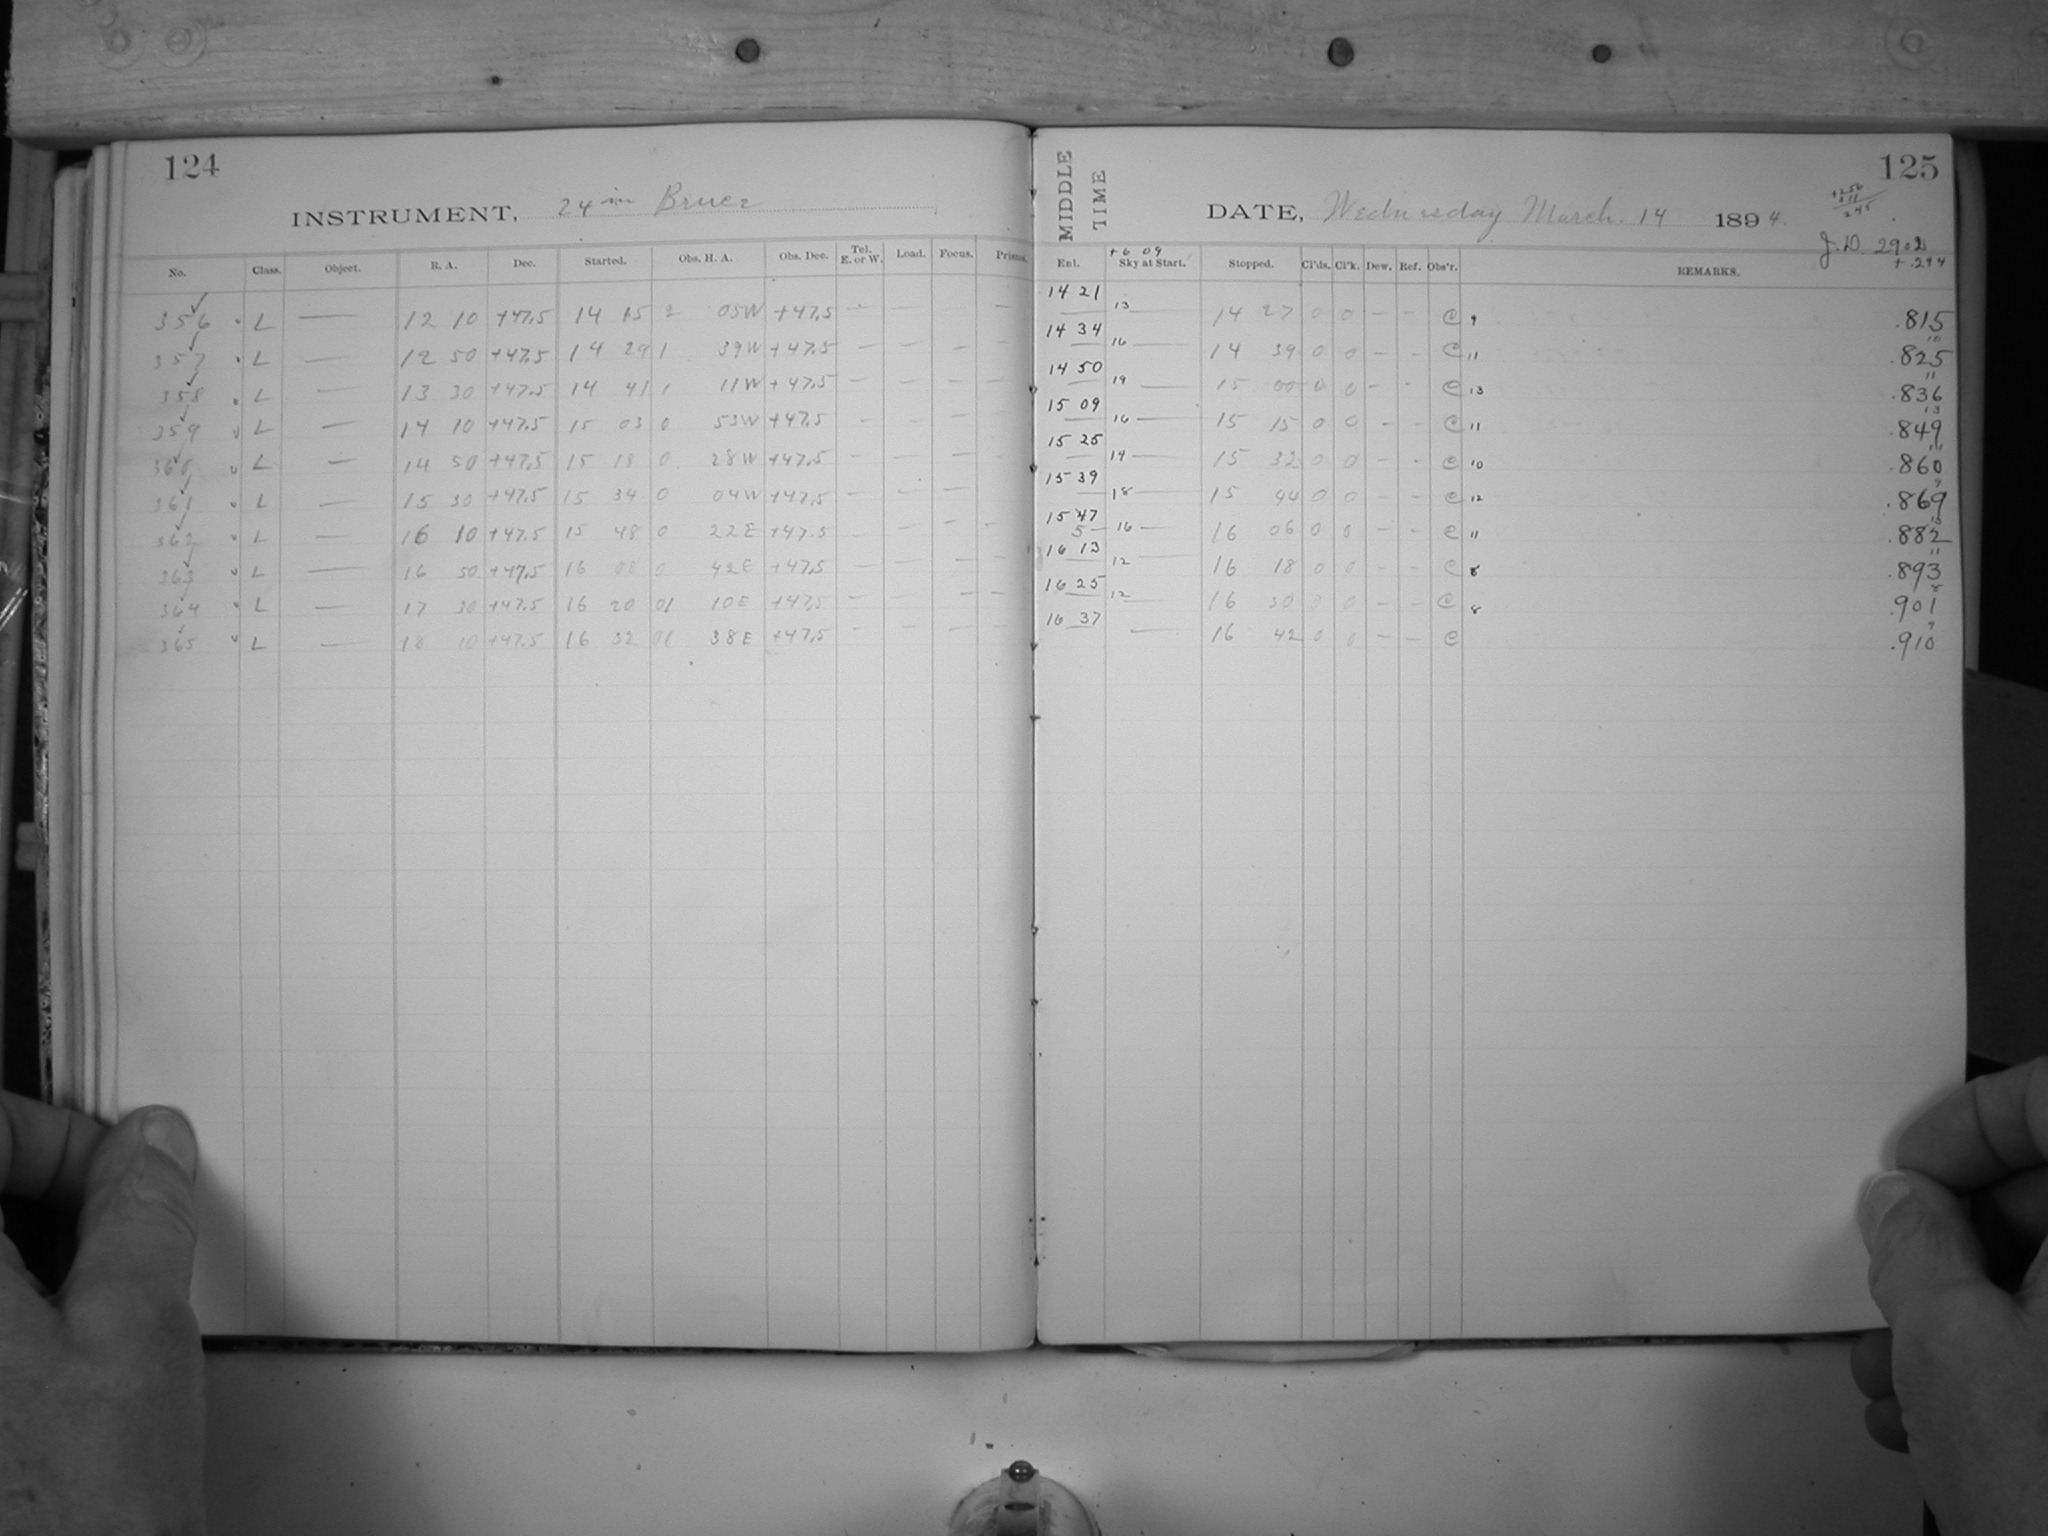 124
INSTRUMENT, 24 in Bruce
No. Class. Object. R. A. Dec. Started. Obs. H. A. Obs. Dec. Tel. E. or W. Load. Focus. Prisms.
356 L — 12 10 +47.5 14 15 2 05W +47.5 — — — —
357 L — 12 50 +47.5 14 29 1 39W +47.5 — — — —
358 L — 13 30 +47.5 14 41 1 11W +47.5 — — — —
359 L — 14 10 +47.5 15 03 0 53W +47.5 — — — —
360 L — 14 50 +47.5 15 18 0 28W +47.5 — — — —
361 L — 15 30 +47.5 15 34 0 04W +47.5 — — —
362 L — 16 10 +47.5 15 48 0 22E +47.5 — — —
363 L — 16 50 +47.5 16 08 0 42E +47.5 — — — —
364 L — 17 30 +47.5 16 20 01 10E +47.5 — — — —
365 L — 18 10 +47.5 16 32 01 38E +47.5 — — — —
125
MIDDLE TIME
DATE, Wednesday March 14 1894.
+256
245
J.D. 2902
+ .244
+6 09
Enl. Sky at Start. Stopped. Cl'ds. Cl'k. Dew. Ref. Obs'r. REMARKS.
14 21 13 — 14 27 0 0 — — C 9 .815
14 34 16 — 14 39 0 0 — — C 11 .825 10
14 50 19 — 15 00 0 0 — — C 13 .836 11
15 09 16 — 15 15 0 0 — — C 11 .849 13
15 25 14 — 15 32 0 0 — — C 10 .860 11
15 39 18 — 15 44 0 0 — — C 12 .869 9
15 47 5 — 16 — 16 06 0 0 — — C 11 .882 13
16 13 12 — 16 18 0 0 — — C 8 .893 11
16 25 12 — 16 30 0 0 — — C 8 .901 8
16 37 — 16 42 0 0 — — C .910 9